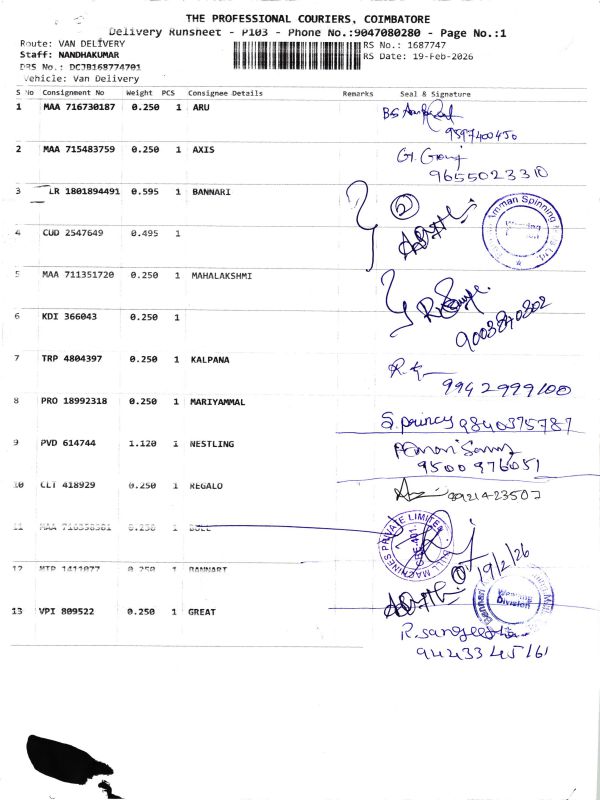 THE PROFESSIONAL COURIERS, COIMBATORE
Delivery Runsheet - P103 - Phone No.:9047080280 - Page No.:1
Route: VAN DELIVERY
RS No.: 1687747
Staff: NANDHAKUMAR
RS Date: 19-Feb-2026
DRS No.: DCJB168774701
Vehicle: Van Delivery
S No Consignment No Weight PCS Consignee Details Remarks Seal & Signature
1 MAA 716730187 0.250 1 ARU
9597400450
2 MAA 715483759 0.250 1 AXIS
9655023310
3 LR 1801894491 0.595 1 BANNARI
2
Amman Spinning
4 CUD 2547649 0.495 1
5 MAA 711351720 0.250 1 MAHALAKSHMI
6 KDI 366043 0.250 1
7 TRP 4804397 0.250 1 KALPANA
9942999100
8 PRO 18992318 0.250 1 MARIYAMMAL
9840375787
9 PVD 614744 1.120 1 NESTLING
9500976051
10 CLT 418929 0.250 1 REGALO
11 MAA 0.250 1 BULL
BULL MACHINES PRIVATE LIMITED
19/2/26
12 MTP 1411077 0.250 1 BANNARI
Weaving Division
13 VPI 809522 0.250 1 GREAT